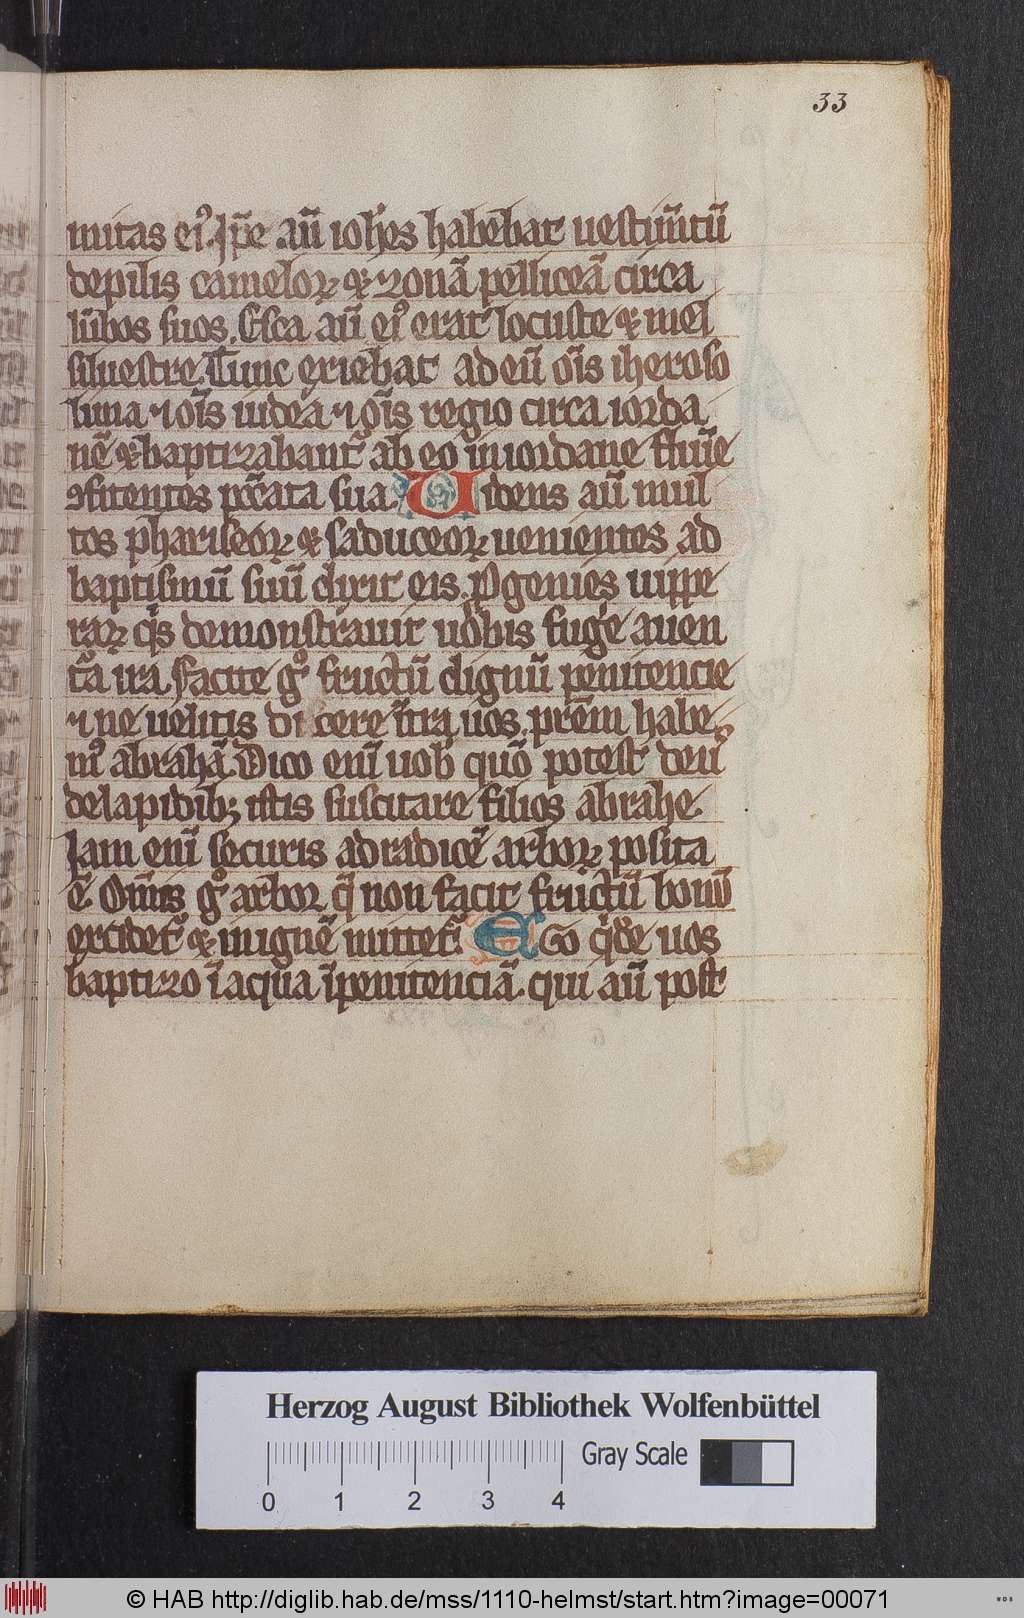 33
mitas eiꝰ. Ip̄e aū ioh̓es habebat uestim̄tū
depilis cameloꝝ ⁊ zonā pelliceā circa
lūbos suos. Esca aū eiꝰ erat locuste ⁊ mel
siluestre. Tunc exiebat ad eū oīs iheroso
lima ⁊ oīs iudea ⁊ oīs regio circa iorda
nē ⁊ baptizabantᷣ ab eo in iordane flūīe
ꝯfitentes pccāta sua. Uidens aū mul
tos phariseoꝝ ⁊ saduceoꝝ uenientes ad
baptismū suū dixit eis. Progenies uippe
raꝝ qͥs demonstrauit uobis fuge᷑ auen
tᷣa ira. Facite gͦ fructū dignū penitencie
⁊ ne uelitis dicere īt̓ uos. prēm habe
mꝰ abrahā. Dico enī uob̓ qm̄ potest deꝰ
delapidibꝫ istis suscitare filios abrahe.
Jam enī securis adradicē arboꝝ posita
ē. Om̄is gͦ arbor q̄ non facit fructū bonū
excidetᷣ ⁊ inignē mittetᷣ. EGo qͥde uos
baptizo ī aqua īpenitenciā. qui aū post
Herzog August Bibliothek Wolfenbüttel
Gray Scale
0 1 2 3 4
© HAB http://diglib.hab.de/mss/1110-helmst/start.htm?image=00071